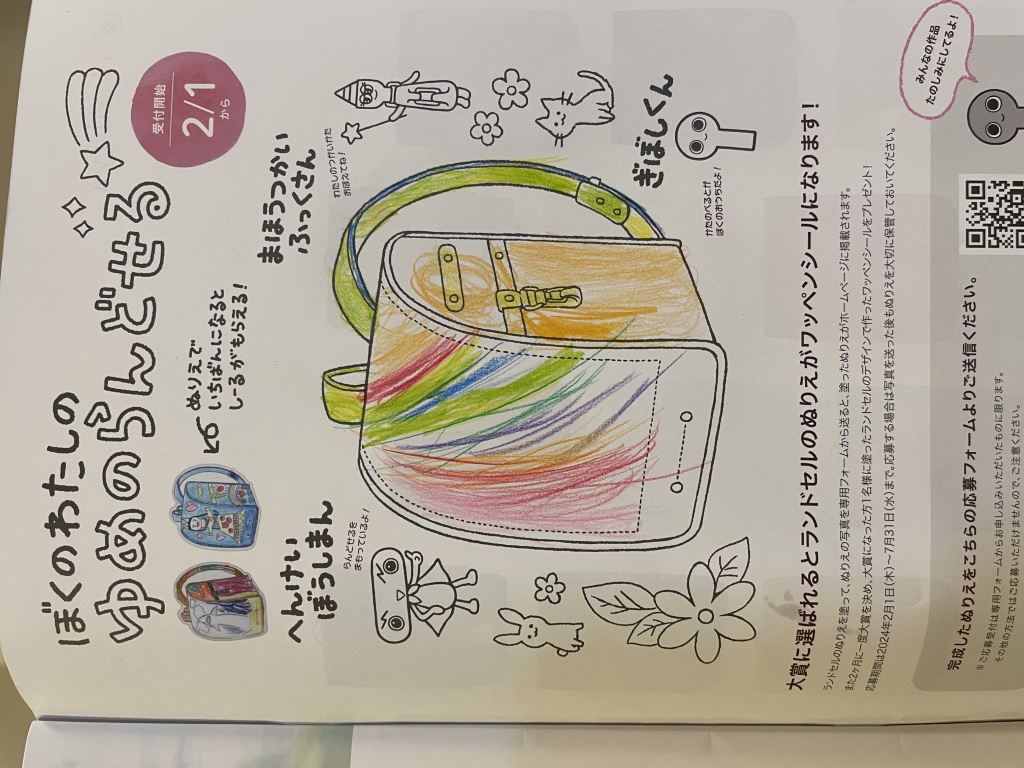 ぼくのわたしの
ゆめのらんどせる
受付開始
2/1
から
ぬりえで
いちばんになると
しーるがもらえる!
へんけい
ぼうしまん
らんどせるを
まもっているよ!
まほうつかい
ふっくさん
わたしのつかいかた
おぼえてね!
ぎぼしくん
かたのべるとが
ぼくのおうちだよ!
大賞に選ばれるとランドセルのぬりえがワッペンシールになります!
ランドセルのぬりえを塗って、ぬりえの写真を専用フォームから送ると、塗ったぬりえがホームページに掲載されます。
また2ヶ月に一度大賞を決め、大賞になった方1名様に塗ったランドセルのデザインで作ったワッペンシールをプレゼント!
応募期間は2024年2月1日(木)~7月31日(水)まで。応募する場合は写真を送った後もぬりえを大切に保管しておいてください。
みんなの作品
たのしみにしてるよ!
完成したぬりえをこちらの応募フォームよりご送信ください。
※ご応募受付は専用フォームからお申し込みいただいたものに限ります。
その他の方法ではご応募いただけませんので、ご注意ください。